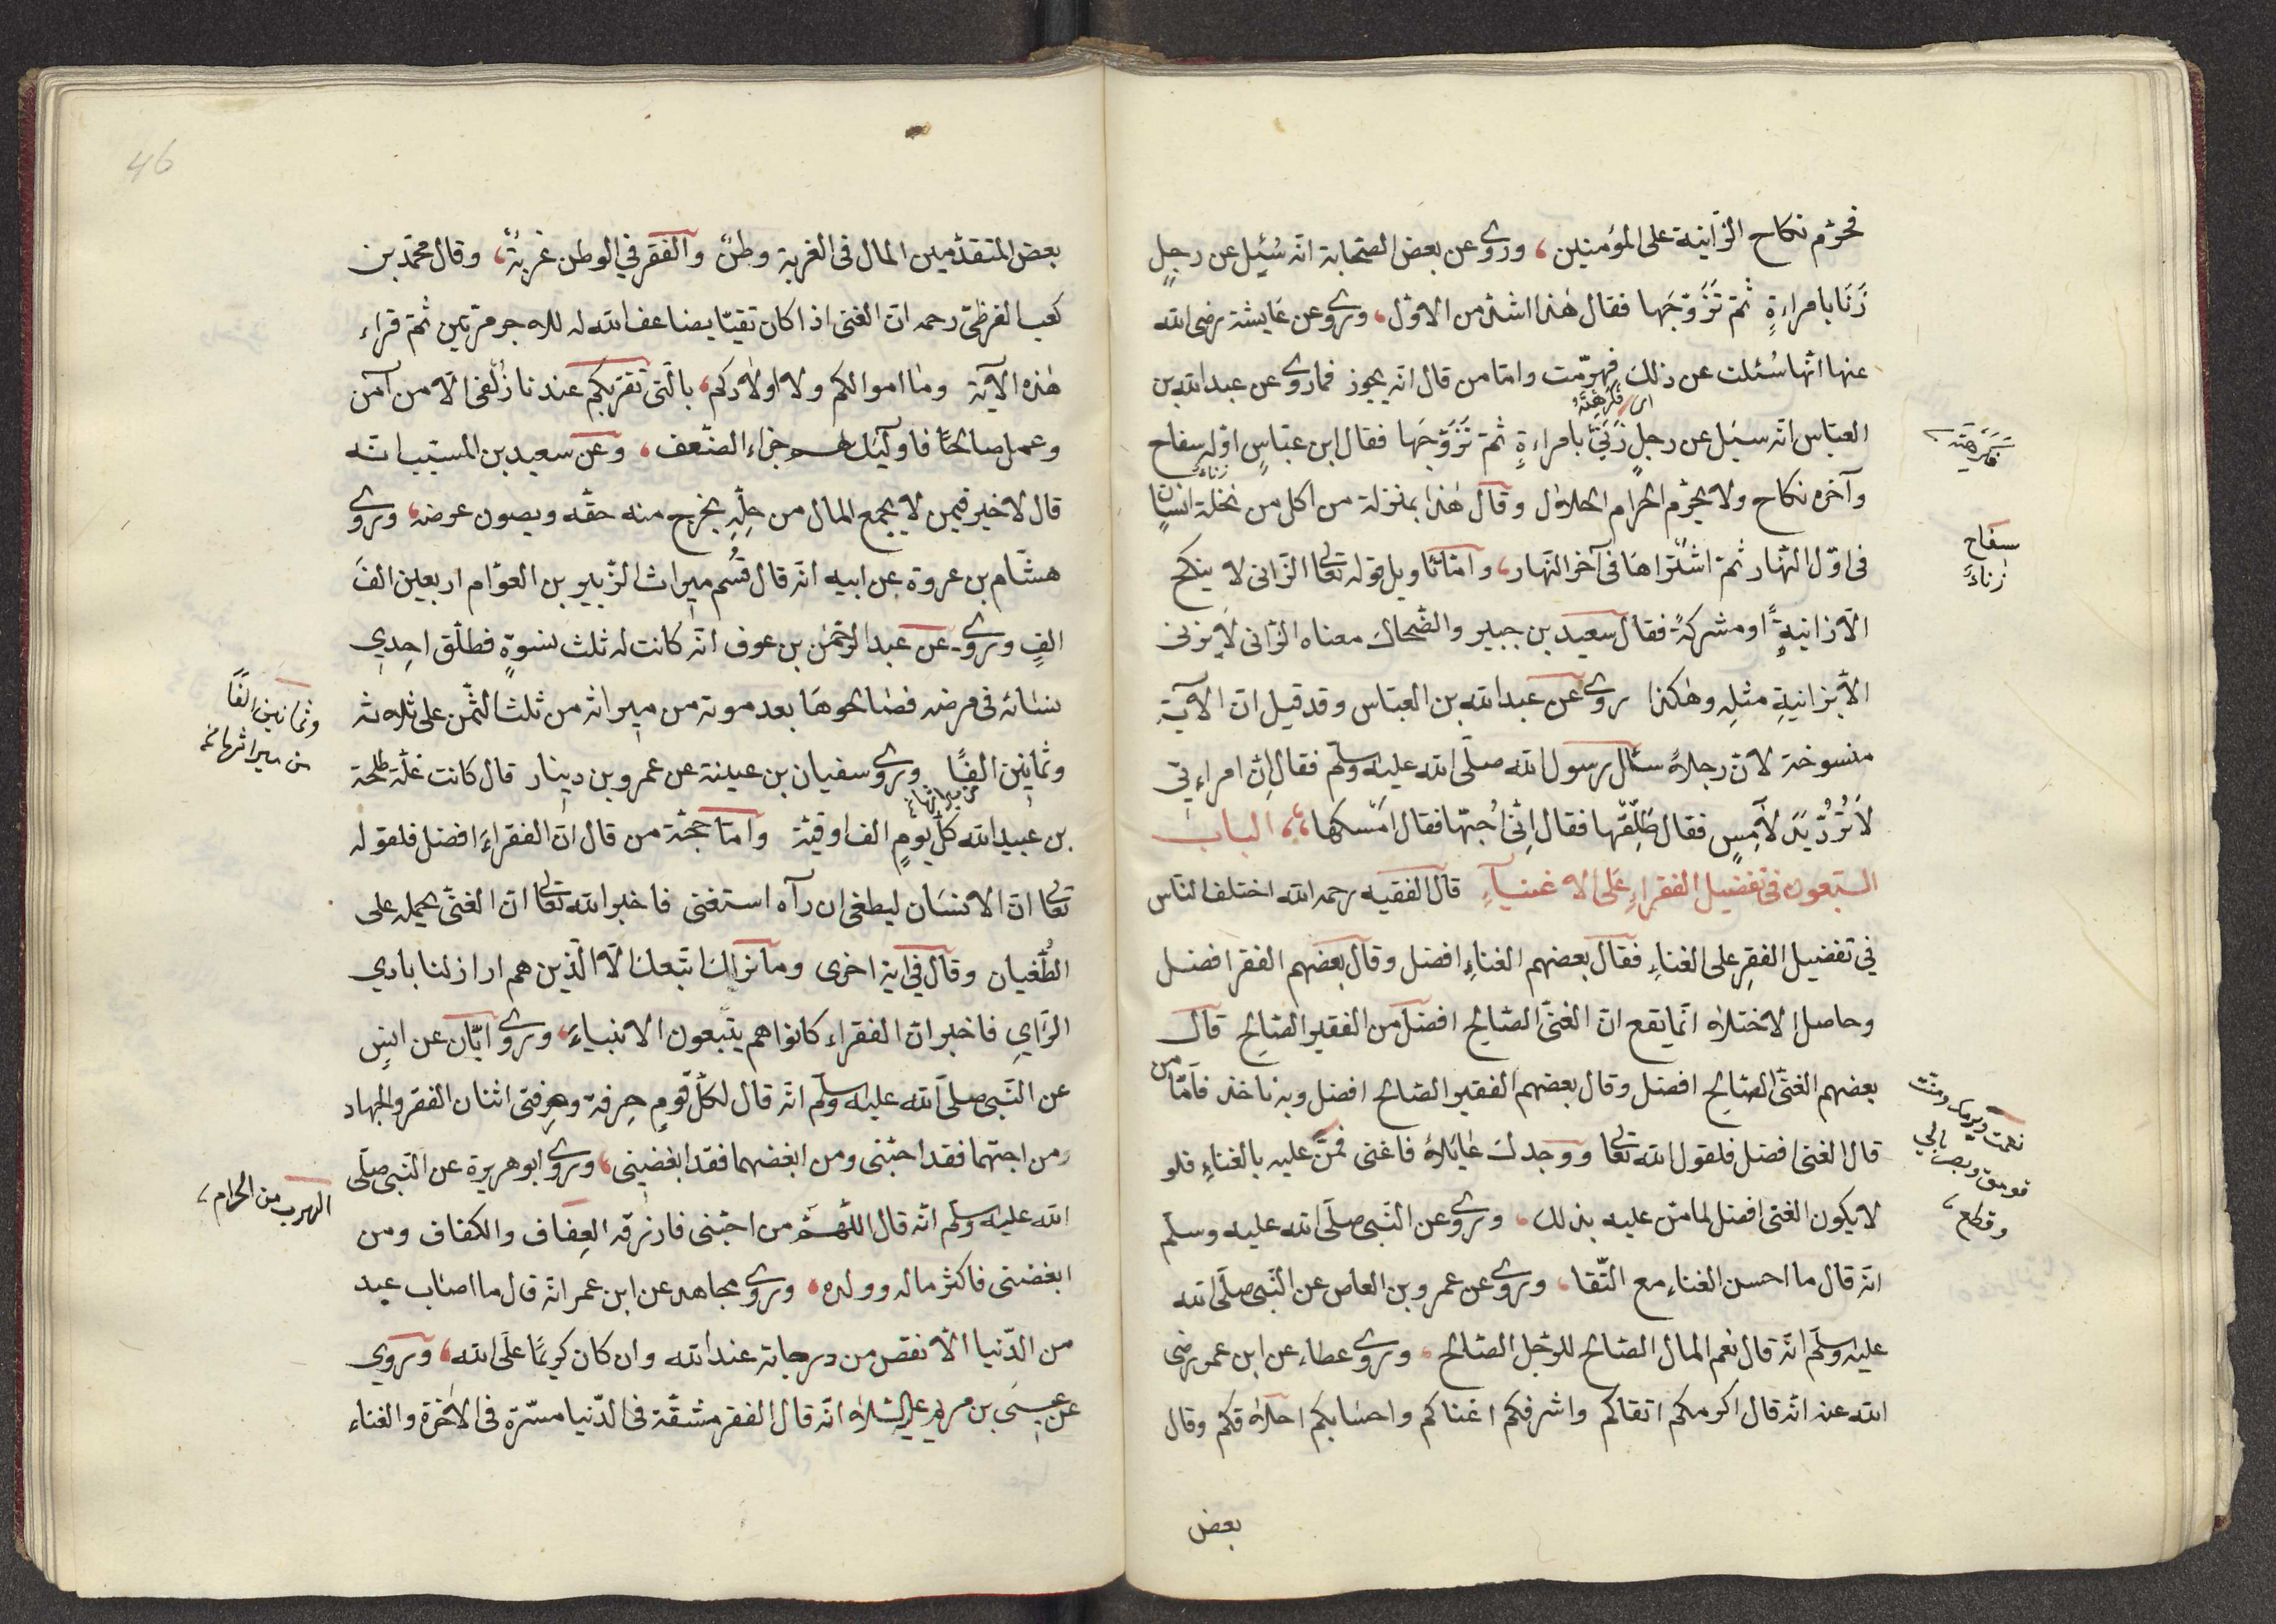 فحرّم نكاح الزّانية على المؤمنين، وروى عن بعض الصّحابة انّه سُئِل عن رجلٍ
زَنَا بامراءةٍ ثمّ تَزَوَّجَها فقال هٰذا اشدّ من الاوّل، وروى عن عَايشة رضى الله
عنها انّها سُئلت عن ذلك فهرمت وامّا من قال انّه يجوز فماروى عن عبد الله بن
اى فكرهته
العبّاس انّه سئل عن رجلٍ زَنَىٰ بامراءةٍ ثمّ تَزَوَّجَها فقال ابن عبّاسٍ اوّله سفاح
زناء
وآخره نكاح ولا يحرّم الحرام الحلال وقال هٰذا بمنزلة من اكل من نخلة انسانٍ
فى اوّل النّهار ثمّ اشتراها فى آخر النّهار، وامّا تاويل قوله تعالى الزّانى لا ينكح
الّا زانيةً او مشركةً فقال سعيد بن جبير والضّحاك معناه الزّانى لا يزنى
الّا بزانيةٍ مثلِه وهٰكذا روى عن عبد الله بن العبّاس وقد قيل انّ الآية
منسوخة لانّ رجلاً سئال رسول الله صلّى الله عليه وسلّم فقال انّ امراءتى
لَا تَرُدُّ يَدَ لَامِسٍ فقال طَلِّقها فقال اِنّى اُحبّها فقال اَمْسكها، الباب
السّبعون فى تفضيل الفقراءِ عَلى الاغنياءِ قال الفقيه رحمه الله اختلف النّاس
فى تفضيل الفقرِ على الغناءِ فقال بعضهم الغناءِ افضل وقال بعضهم الفقر افضل
وحاصل الاختلاف انّما يقع انّ الغنىّ الصّالح افضل من الفقير الصّالح قال
بعضهم الغنىّ الصّالح افضل وقال بعضهم الفقير الصّالح افضل وبه ناخذ فامّا من
قال الغنى افضل فلقول الله تعالى ووجدك عَائلاً فاغنى فمنّ عليه بالغناءِ فلو
لا يكون الغنى افضل لما منّ عليه بذلك، وروى عن النّبى صلّى الله عليه وسلّم
انّه قال ما احسن الغناءِ مع التّقا، وروى عن عمرو بن العاص عن النّبى صلّى الله
عليه وسلّم انّه قال نعم المال الصّالح للرّجل الصّالح، وروى عطاء عن ابن عمر رضى
الله عنه انّه قال اكرمكم اتقاكم واشرفكم اغناكم واحسابكم اخلاقكم وقال
بعض
فكرهته
سفاح
زناءً
46
بعض المتقدّمين المال فى الغربة وطنٌ والفقر في الوطن غربةٌ، وقال محمّد بن
كعب القرظىّ رحمه انّ الغنى اذا كان تقيّا يضاعف الله له الاجر مرّتين ثمّ قراء
هٰذه الآية ومَا اموالكم ولا اولادكم، بالّتى تقرّبكم عندنا زُلفى الّا من آمن
وعمل صالحًا فاولئك لهم جزاء الضّعف، وعن سعيد بن المسيّب انّه
قال لا خير فيمن لا يجمع المال من حِلّهِ يخرج منه حقّه ويصون عرضه، وروى
هشام بن عروة عن ابيه انّه قال قُسم ميراث الزّبير بن العوّام اربعين الفَ
الفٍ وروى عن عبد الرّحمٰن بن عوف انّه كانت له ثلث نسوةٍ فطلّق احدي
نسائه فى مرضه فصَالحوهَا بعد موته من ميراثه من ثلث الثّمن على ثلاثة
وثمانين الفًا وروى سفيان بن عيينة عن عمرو بن دينار قال كانت غلّة طلحة
من ميراثها
بن عبيد الله كلّ يومٍ الف اوقيّة وامّا حجّة من قال انّ الفقراءَ افضل فلقوله
تعالى انّ الانسَان ليطغى ان رآه استغنى فاخبر الله تعالى انّ الغنىّ يحمله على
الطُّغيان وقال في اية اخرى وما نراك اتّبعك الّا الّذين هم اراذلنا بادي
الرّايِ فاخبر انّ الفقراء كانوا هم يتّبعون الانبياءَ، وروى ابّان عن انسٍ
عن النّبى صلّى الله عليه وسلّم انّه قال لكلّ قومٍ حِرفة وحِرفتى اثنان الفقر والجهاد
ومن احبّهما فقد احبّنى ومن ابغضهما فقد ابغضنى، وروى ابو هريرة عن النّبى صلّى
الله عليه وسلّم انّه قال اللّهمّ من احبّنى فارزقه العِفاف والكفاف ومن
ابغضنى فاكثر ماله وولده، وروى مجاهد عن ابن عمر انّه قال ما اصَاب عبد
من الدّنيا الّا نقص من درجاته عند الله وان كان كريمًا على الله، وروي
عن عيسى بن مريم عليه السّلام انّه قال الفقر مشقّة فى الدّنيا مسّرة فى الآخرة والغناء
وثمانين الفًا
من ميراثها
الهرب من الحرام